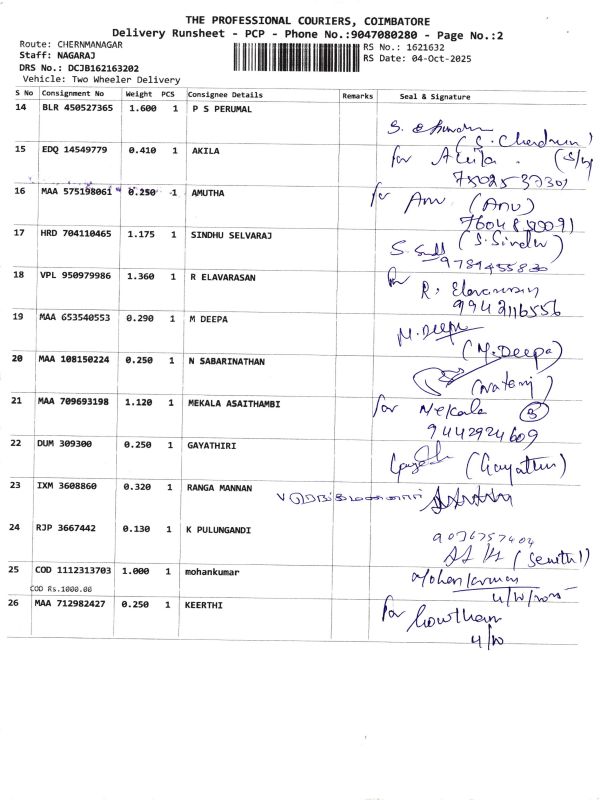 THE PROFESSIONAL COURIERS, COIMBATORE
Delivery Runsheet - PCP - Phone No.:9047080280 - Page No.:2
Route: CHERNMANAGAR
RS No.: 1621632
Staff: NAGARAJ
RS Date: 04-Oct-2025
DRS No.: DCJB162163202
Vehicle: Two Wheeler Delivery
S No Consignment No Weight PCS Consignee Details Remarks Seal & Signature
14 BLR 450527365 1.600 1 P S PERUMAL
15 EDQ 14549779 0.410 1 AKILA
for Akila
16 MAA 575198061 0.250 1 AMUTHA
for Anu (Anu)
17 HRD 704110465 1.175 1 SINDHU SELVARAJ
(S.Sindhu)
18 VPL 950979986 1.360 1 R ELAVARASAN
for R. Elavarasan
9942116556
19 MAA 653540553 0.290 1 M DEEPA
M.Deepa
(M.Deepa)
20 MAA 108150224 0.250 1 N SABARINATHAN
21 MAA 709693198 1.120 1 MEKALA ASAITHAMBI
for Mekala
9442924609
22 DUM 309300 0.250 1 GAYATHIRI
(Gayathri)
23 IXM 3608860 0.320 1 RANGA MANNAN
24 RJP 3667442 0.130 1 K PULUNGANDI
9036757404
(Senthil)
25 COD 1112313703 1.000 1 mohankumar
Mohankumar
COD Rs.1000.00
4/10/2025
26 MAA 712982427 0.250 1 KEERTHI
for Gowtham
4/10